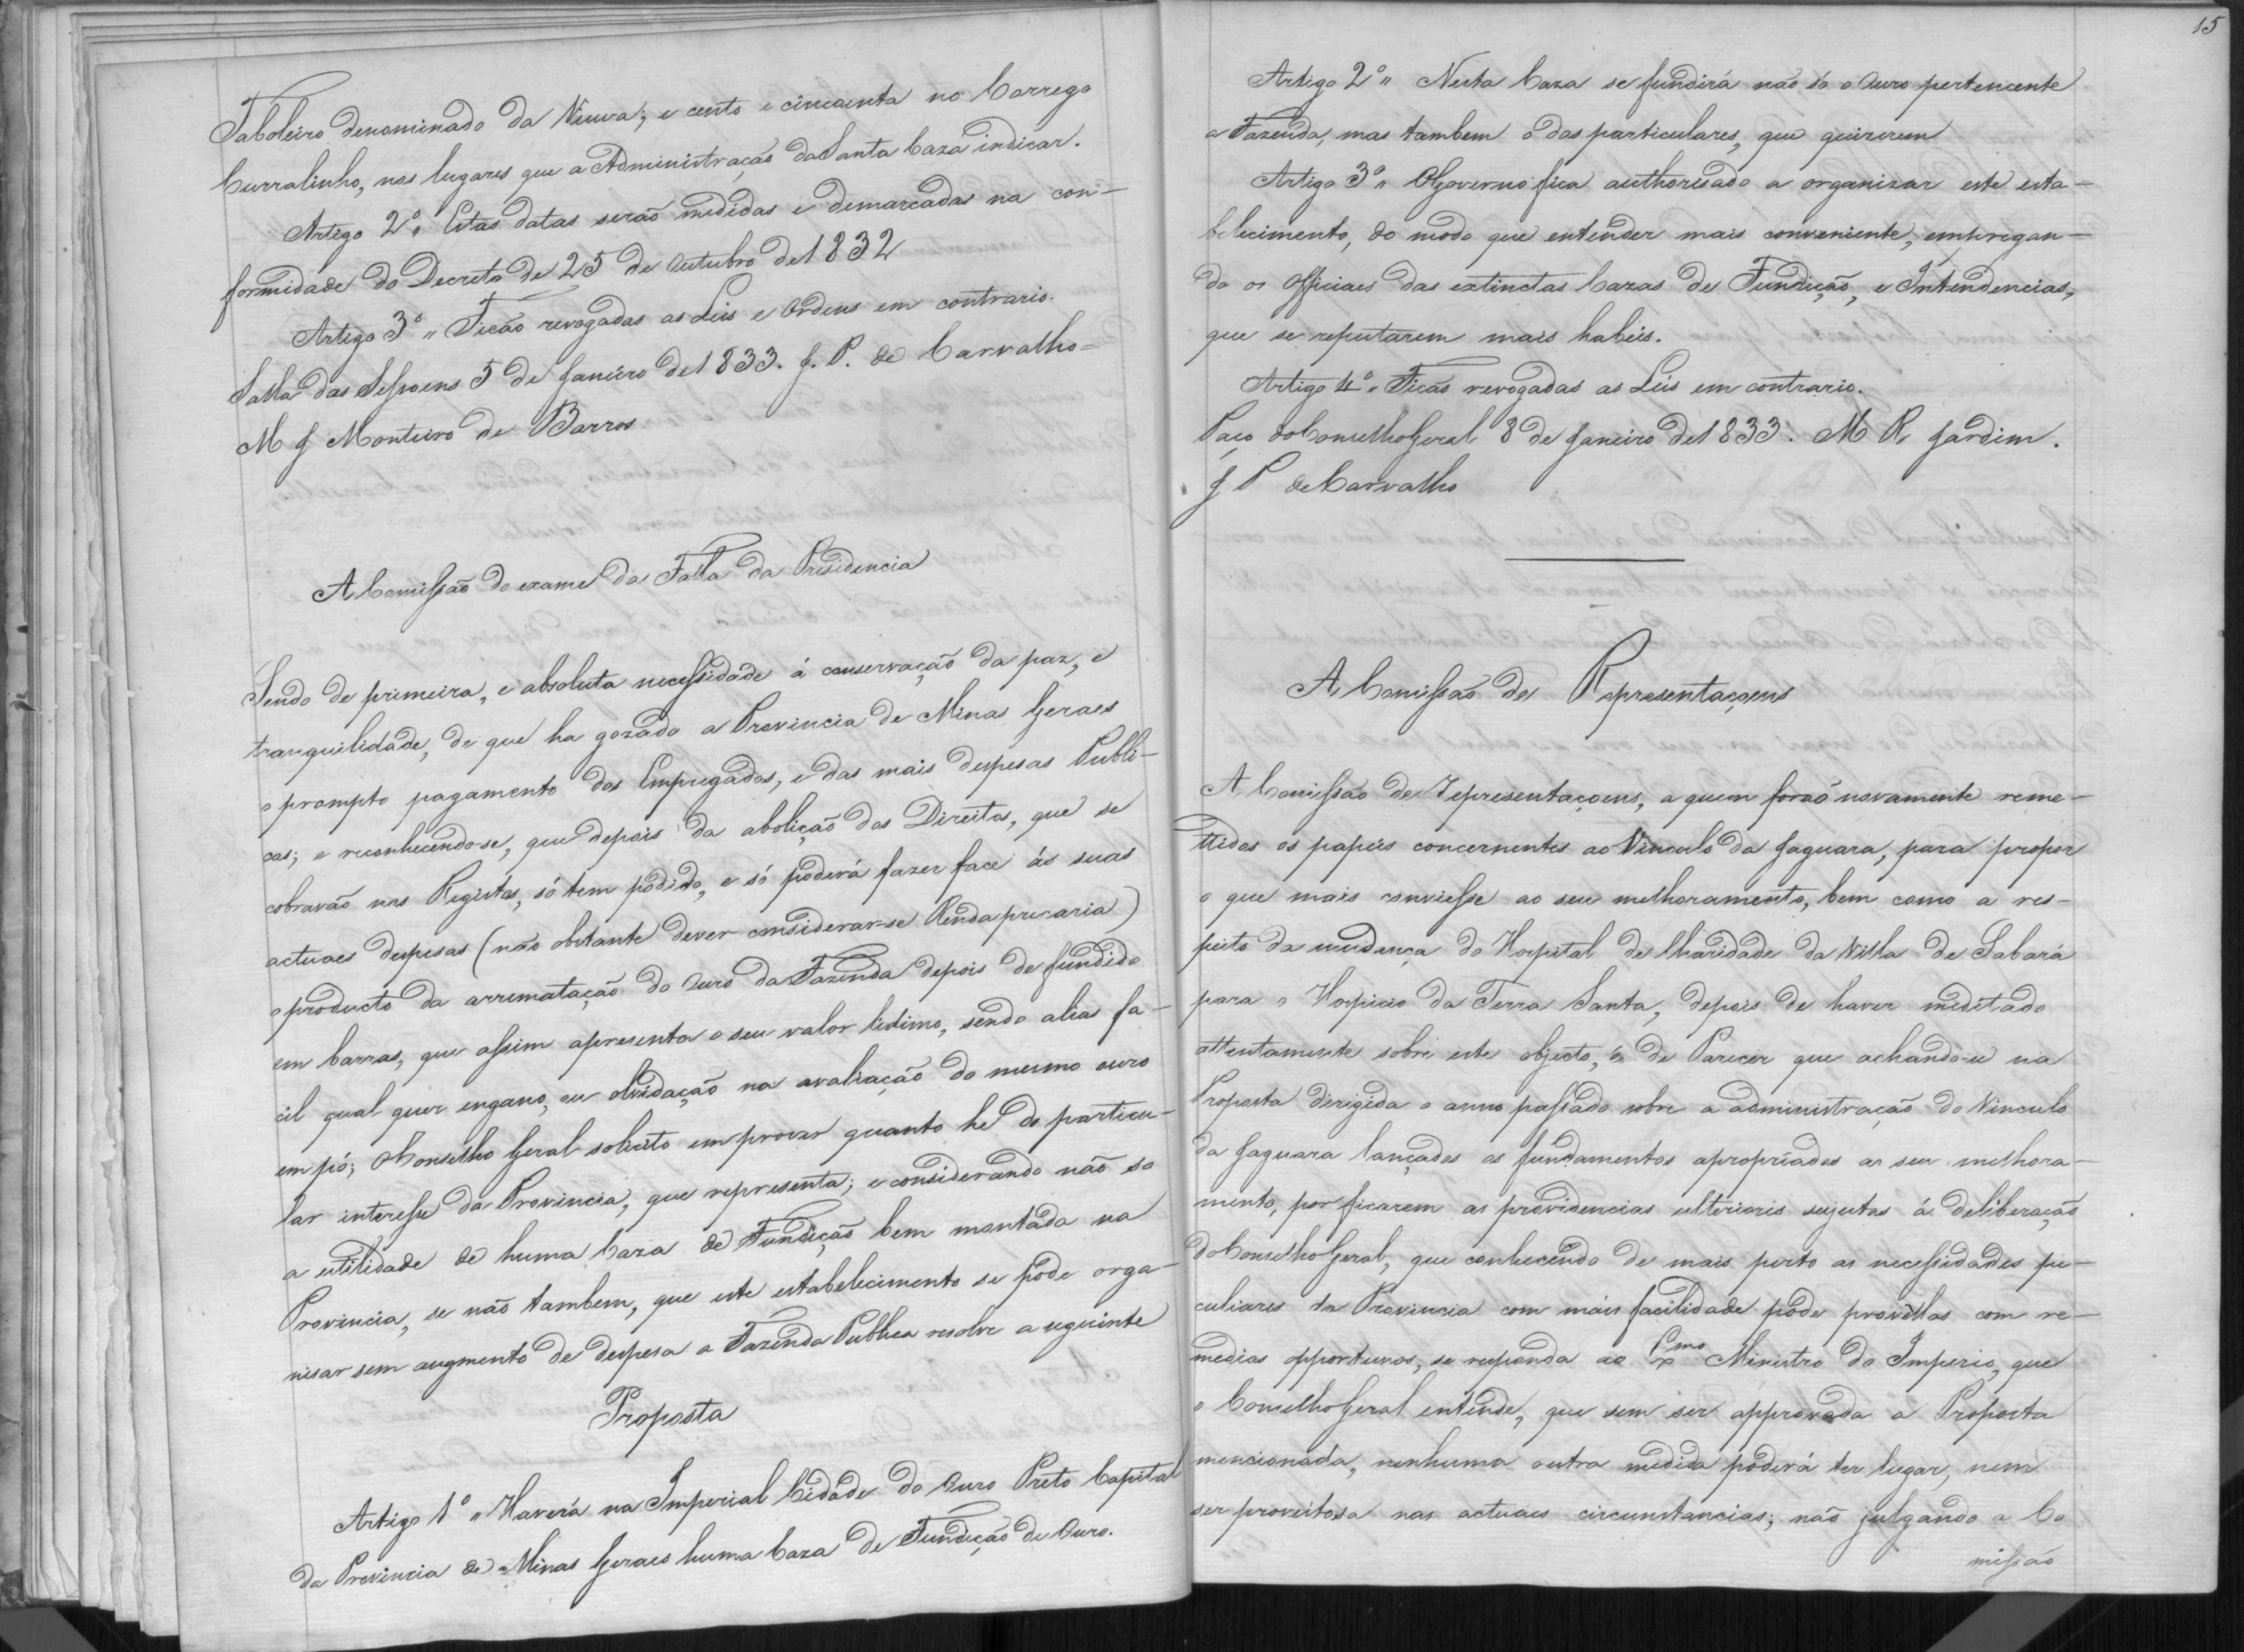 Taboleiro denominado da Viuva; e cento e cincoenta no Corrego
Curralinho, nos lugares que a Administração da Santa Caza indicar.
Artigo 2º " Estas datas serão medidas e demarcadas na con-
formidade do Decreto de 25 de Outubro de 1832
Artigo 3º " Ficão revogadas as Leis e Ordens em contrario.
Salla das Sessoens 5 de Janeiro de 1833. J. P. de Carvalho =
M J Monteiro de Barros
A Comissão do exame da Falla da Presidencia
Sendo de primeira, e absoluta necessidade á conservação da paz, e
tranquilidade, de que ha gozado a Provincia de Minas Geraes
o prompto pagamento dos Empregados, e das mais despesas Publi-
cas; e reconhecendo-se, que depois da abolição dos Direitos, que se
cobravão nos Registos, só tem podido, e só poderá fazer face ás suas
actuaes despesas (não obstante dever considerar-se Renda precaria)
o producto da arrematação do Ouro da Fazenda depois de fundido
em barras, que assim apresenta o seu valor lidimo, sendo alias fa-
cil qual quer engano, ou na avaliação do mesmo ouro
em pó; O Conselho Geral solicito em provar quanto he do particu-
lar interesse da Provincia, que representa; e considerando não so
a utilidade de huma Caza de Fundição bem montada na
Provincia, se não tambem, que este estabelecimento se póde orga-
nisar sem augmento de despesa a Fazenda Publica resolve a seguinte
Proposta
Artigo 1º " Haverá na Imperial Cidade do Ouro Preto Capital
da Provincia de Minas Geraes huma Caza de Fundição de Ouro.
15
Artigo 2º " Nesta Caza se fundirá não só o Ouro pertencente
a Fazenda, mas tambem o dos particulares, que quizerem
Artigo 3º " O Governo fica authorisado a organizar este esta-
belecimento, do modo que entender mais conveniente, empregan-
do os Officiaes das extinctas Cazas de Fundição, e Intendencias,
que se reputarem mais habeis.
Artigo 4º " Ficão revogadas as Leis em contrario.
Paço do Conselho Geral 8 de Janeiro de 1833. M R. Jardim.
J P de Carvalho
A Comissão de Representaçoens
A Comissão de Representaçoens, a quem forão novamente reme-
ttidos os papeis concernentes ao Vinculo da Jaguara, para propor
o que mais conviesse ao seu melhoramento, bem como a res-
peito da mudança do Hospital de Charidade da Villa de Sabará
para o Hospicio da Terra Santa, depois de haver meditado
attentamente sobre este objecto, é de Parecer que achando-se na
Proposta dirigida o anno passado sobre a administração do Vinculo
da Jaguara lançados os fundamentos apropriados ao seu melhora-
mento, por ficarem as providencias ulteriores sujeitas á deliberação
do Conselho Geral, que conhecendo de mais perto as necessidades pe-
culiares da Provincia com mais facilidade póde provêllas com re-
medios opportunos, se responda ao Exmo Ministro do Imperio, que
o Conselho Geral entende, que sem ser approvada a Proposta
mencionada, nenhuma outra medida poderá ter lugar, nem
ser proveitosa nas actuaes circumstancias; não julgando a Co
missão